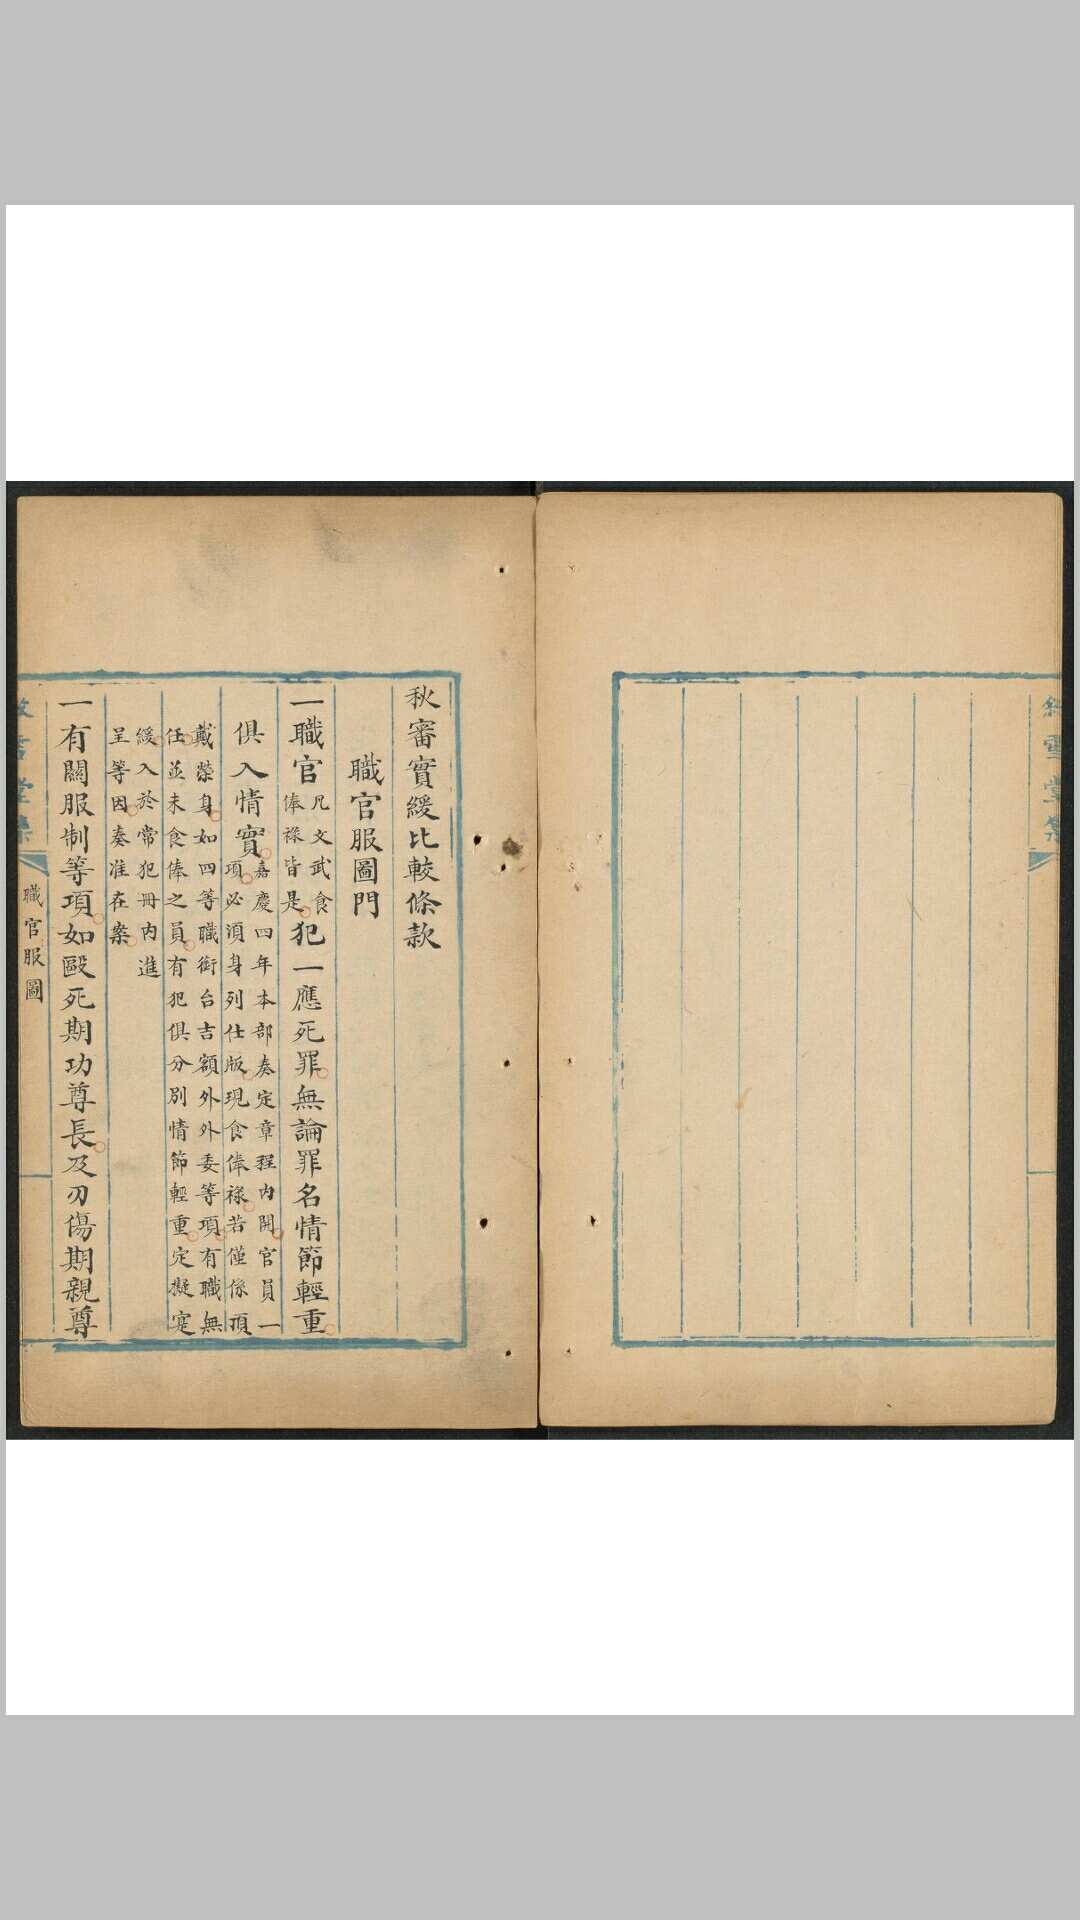 秋審實緩比較條款
職官服圖門
一職官凡文武食俸祿皆是犯一應死罪無論罪名情節輕重
俱入情實嘉慶四年本部奏定章程内開官員一
項必須身列仕版現食俸祿若僅係頂
戴榮身如四等職銜台吉額外外委等項有職無
任並未食俸之員有犯俱分別情節輕重定擬寔
緩入於常犯冊内進
呈等因奏准在案
一有關服制等項如毆死期功尊長及刃傷期親尊
職官服圖